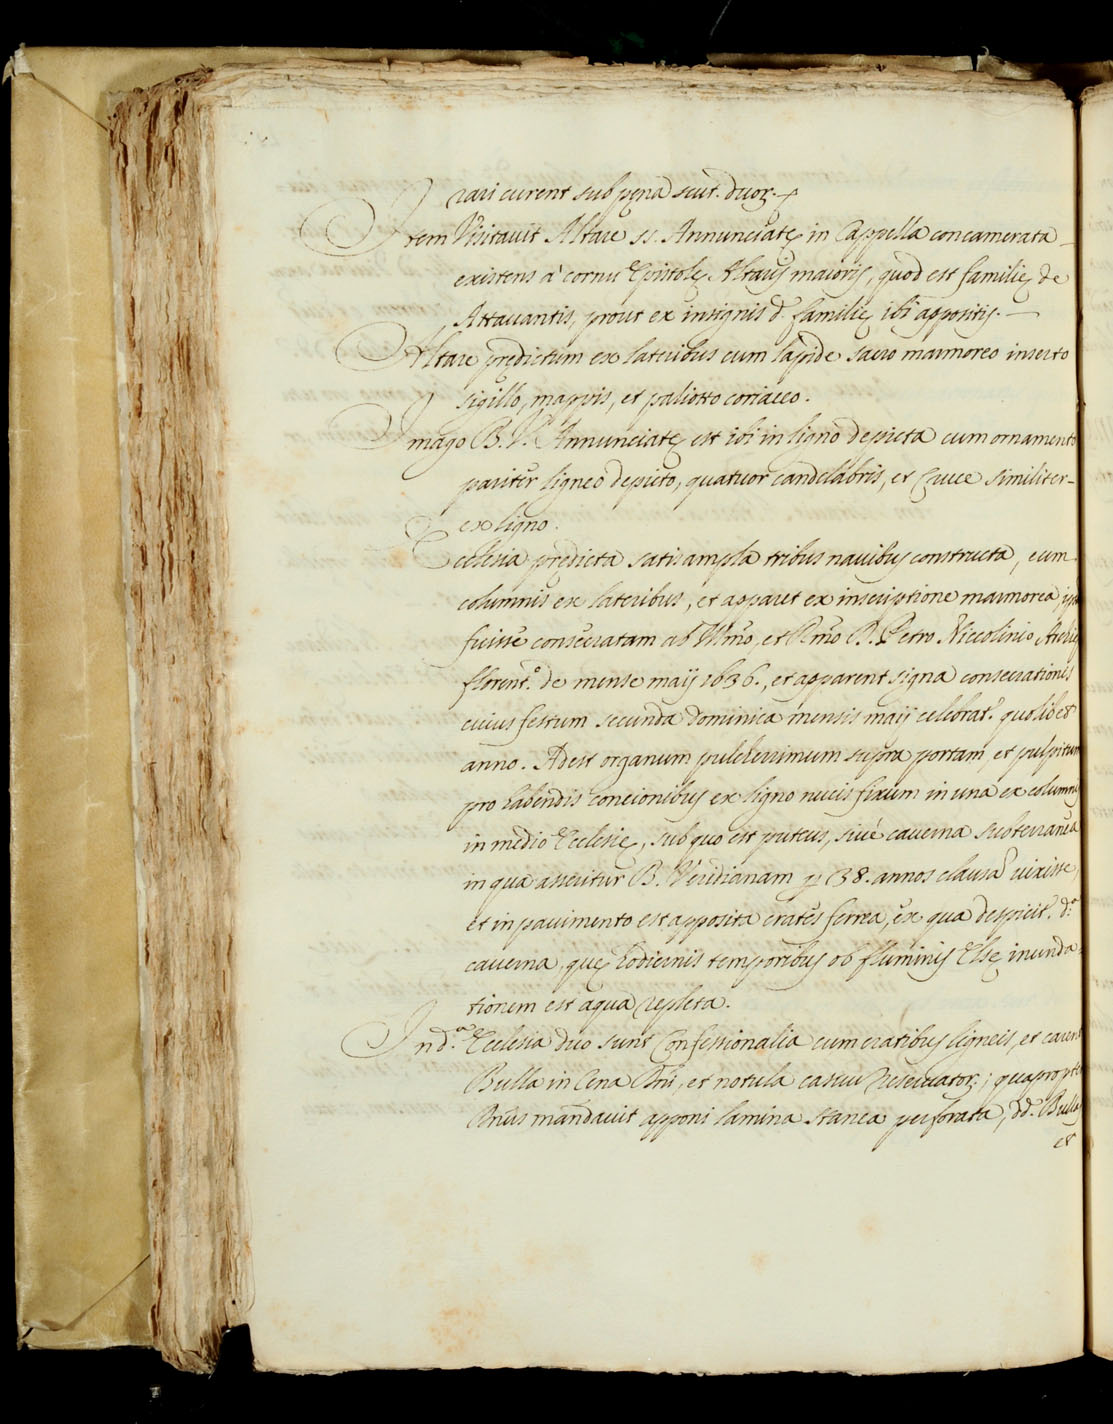 rari curent sub pęna scut. duor.
Item Visitavit Altare ss. Annunciatę in Cappella concamerata
existens à cornu Epistolę Altaris maioris, quod est familię de
Attavantis, prout ex insignis d. familię ibi appositis.
Altare prędictum ex lateribus cum lapide sacro marmoreo inserto
sigillo, mappis, et paliotto coriaceo.
Imago B. V. Annunciatę est ibi in ligno depicta cum ornamento
pariter ligneo depicto, quatuor candelabris, et Cruce similiter
ex ligno.
Ecclesia prędicta satis ampla tribus navibus constructa, cum
columnis ex lateribus, et apparet ex inscriptione marmorea
fuisse consecratam ab Illmo, et Rmo D. Petro Niccolinio
florent.o de mense maij 1636., et apparent signa consecrationis
cuius festum secunda dominica mensis maij celebrat.r quolibet
anno. Adest organum pulcherrimum supra portam, et pulpitum
pro habendis concionibus ex ligno nucis fixum in una ex columnis
in medio Ecclesię, sub quo est puteus, sivè caverna subterranea
in qua asseritur B. Veridianam p 38. annos clausa vixisse,
et in pavimento est apposita crates ferrea, ex qua despicit.r d.a
caverna, quę hodiernis temporibus ob fluminis Elsę inunda-
tionem est aqua repleta.
In d.a Ecclesia duo sunt Confessionalia cum cratibus ligneis, et carent
Bulla in Cena Dni, et notula casuu reservator.; quapropter
Dnus mandavit apponi lamina stanea perforata, dd. Bullas
et